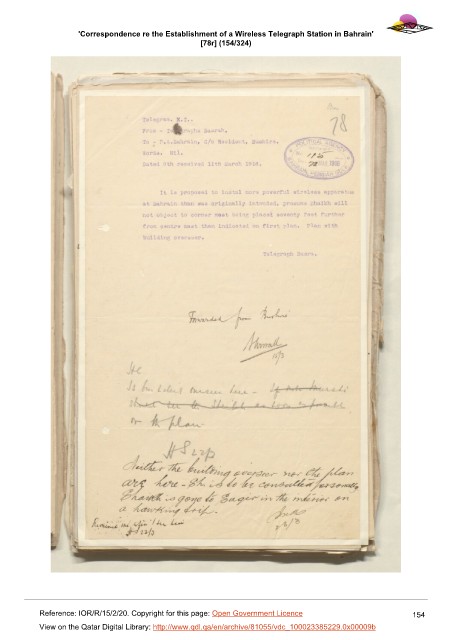 'Correspondence re the Establishment of a Wireless Telegraph Station in Bahrain'
[78r] (154/324)
78
Telegram, R.I.,
From - Telegraphs Basrah.
To - P.A. Bahrain, C/o Resident, Bushire.
Words. Nil.
Dated 9th received 11th March 1916.
POLITICAL AGENCY
It is proposed to instal more powerful wireless apparatus
at Bahrain than was originally intended, presume Sheikh will
not object to corner mast being placed seventy feet further
from centre mast than indicated on first plan. Plan with
building overseer.
Telegraph Basra.
Forwarded from Bushire
Is building overseer here -
or the plan
22/3
Neither the building overseer nor the plan
are here - Sh. is to be consulted personally
Shaikh is gone to in the interior on
a hawking trip.
22/3
Reference: IOR/R/15/2/20. Copyright for this page: Open Government Licence
154
View on the Qatar Digital Library: http://www.qdl.qa/en/archive/81055/vdc_100023385229.0x00009b